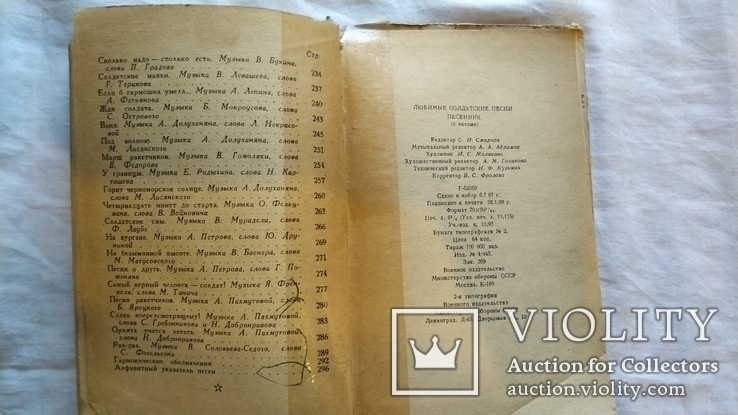 Стр.
Сколько надо — столько есть. Музыка В. Букина,
слова П. Градова 234
Солдатские маяки. Музыка В. Левашова, слова
Г. Терикова 237
Если б гармошка умела... Музыка А. Лепина, слова
А. Фатьянова 240
Жди солдата. Музыка Б. Мокроусова, слова
С. Острового 243
Ваня. Музыка А. Долуханяна, слова Л. Некрасо-
вой 245
Под волною. Музыка А. Долуханяна, слова
М. Лисянского 251
Марш ракетчиков. Музыка В. Гомоляки, слова
В. Федорова 254
У границы. Музыка Е. Родыгина, слова Н. Кар-
ташева 257
Горит черноморское солнце. Музыка А. Долуханяна,
слова М. Лисянского 260
Четырнадцать минут до старта. Музыка О. Фельц-
мана, слова В. Войновича 263
Солдатские сны. Музыка В. Мурадели, слова
Ф. Лаубе 266
На кургане. Музыка А. Петрова, слова Ю. Дру-
ниной 269
На безымянной высоте. Музыка В. Баснера, слова
М. Матусовского 271
Песня о друге. Музыка А. Петрова, слова Г. По-
женяна 274
Самый первый человек — солдат! Музыка Я. Френ-
келя, слова М. Танича 277
Песня ракетчиков. Музыка А. Пахмутовой, слова
Б. Яроцкого 280
Слава впередсмотрящему! Музыка А. Пахмутовой,
слова С. Гребенникова и Н. Добронравова 283
Орлята учатся летать. Музыка А. Пахмутовой,
слова Н. Добронравова 286
Раз-два. Музыка В. Соловьева-Седого, слова
С. Фогельсона 289
Гармонические обозначения 292
Алфавитный указатель песен 296
ЛЮБИМЫЕ СОЛДАТСКИЕ ПЕСНИ
ПЕСЕННИК
(с нотами)
Редактор С. И. Смирнов
Музыкальный редактор А. А. Абрамов
Художник И. С. Маликова
Художественный редактор А. М. Голикова
Технический редактор И. Ф. Кузьмин
Корректор В. С. Фролова
Г-52050
Сдано в набор 6.7.67 г.
Подписано к печати 26.1.68 г.
Формат 70×90
Печ. л. (Усл. печ. л. 11,115)
Уч.-изд. л. 10,95
Бумага типографская № 2.
Цена 64 коп.
Тираж 100 000 экз.
Изд. № 4/445.
Зак. 269
Военное издательство
Министерства обороны СССР
Москва, К-160
2-я типография
Военного издательства
обороны СССР
Ленинград, Д-65, Дворцовая 10
VIOLITY
Auction for Collectors
auction.violity.com